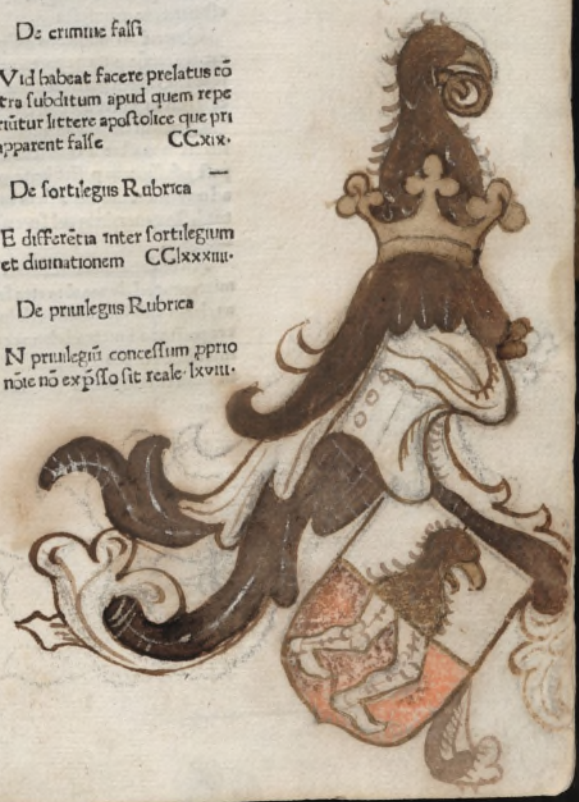 De crimine falsi
Vid habeat facere prelatus cō
tra subditum apud quem repe
riūtur littere apostolice que pri
apparent false CCxix.
De sortilegiis Rubrica
E differētia inter sortilegium
et diuinationem CClxxxiiii.
De priuilegiis Rubrica
N priuilegiū concessum pprio
nōīe nō expsso sit reale. lxviii.